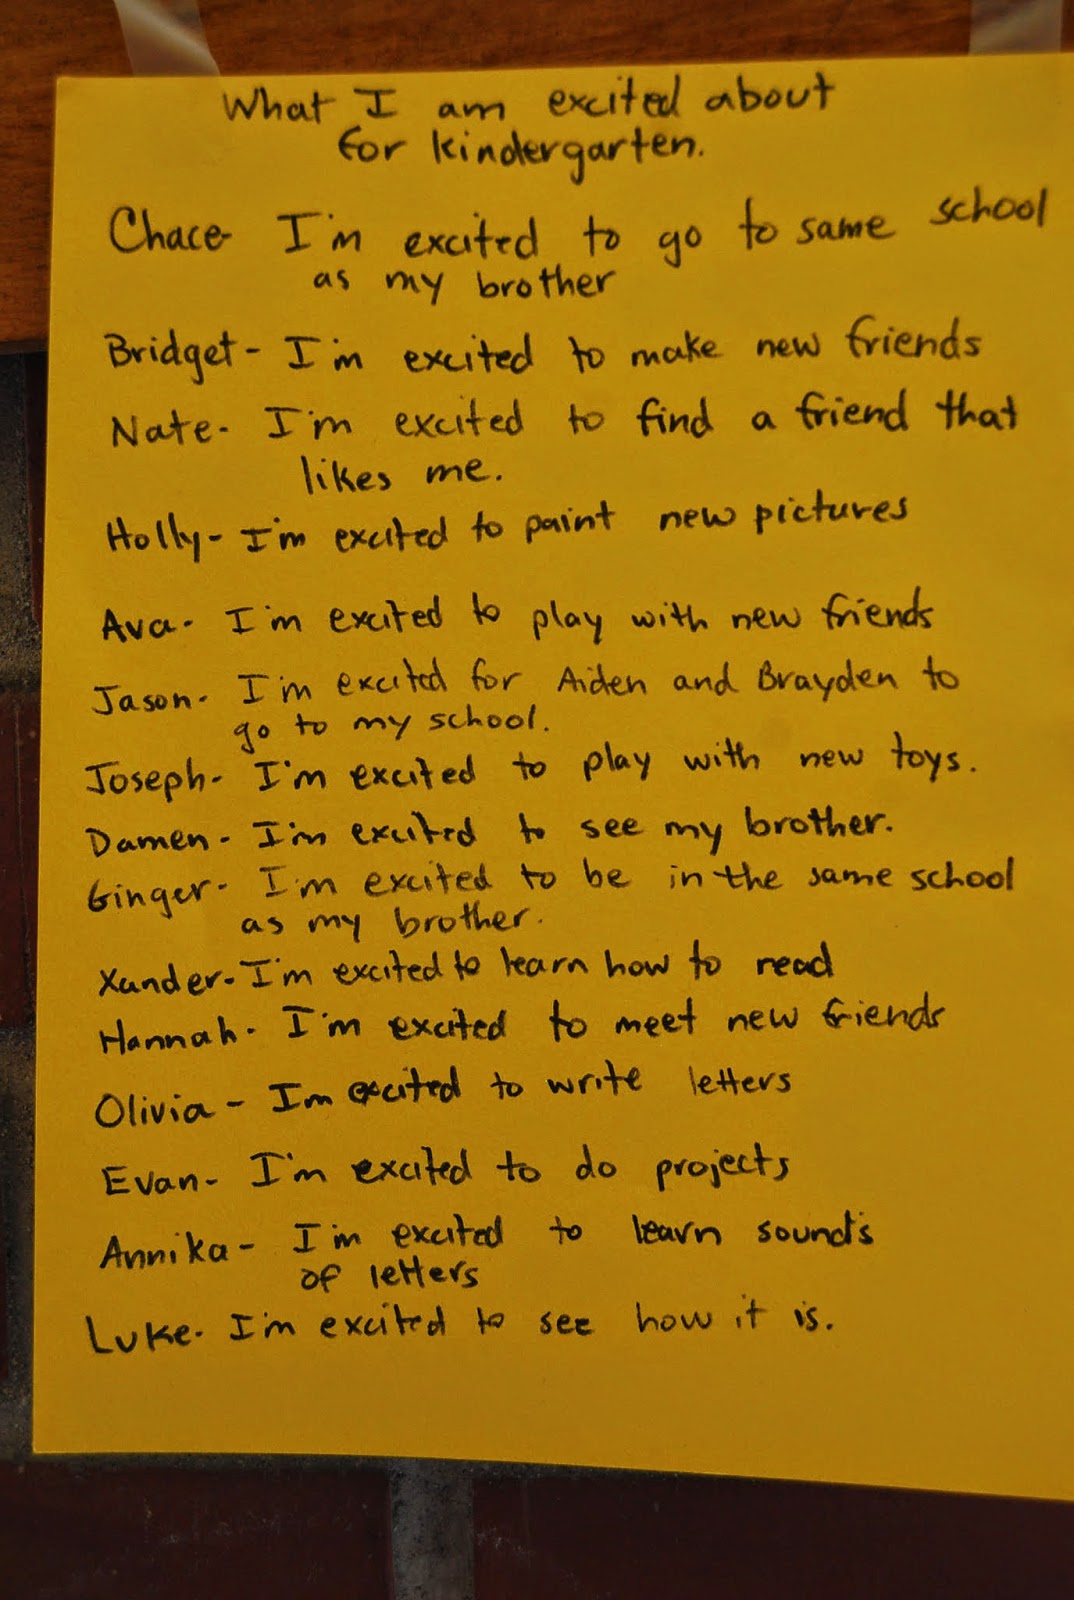 What I am excited about
for kindergarten.
Chace- I'm excited to go to same school
as my brother
Bridget- I'm excited to make new friends
Nate- I'm excited to find a friend that
likes me.
Holly- I'm excited to paint new pictures
Ava- I'm excited to play with new friends
Jason- I'm excited for Aiden and Brayden to
go to my school.
Joseph- I'm excited to play with new toys.
Damen- I'm excited to see my brother.
Ginger- I'm excited to be in the same school
as my brother.
Xander- I'm excited to learn how to read
Hannah- I'm excited to meet new friends
Olivia- Im excited to write letters
Evan- I'm excited to do projects
Annika- I'm excited to learn sounds
of letters
Luke- I'm excited to see how it is.